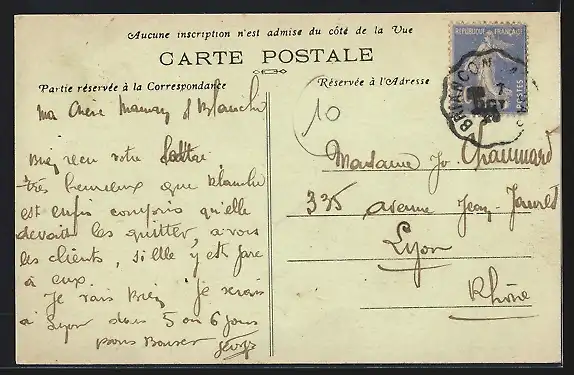 Aucune inscription n'est admise du côté de la Vue
CARTE POSTALE
Partie réservée à la Correspondance
Réservée à l'Adresse
RÉPUBLIQUE FRANÇAISE
POSTES
BRIANCON
7
OCT
10
Ma Chère Maman & Blanche
Bien reçu votre
très heureux que Blanche
est enfin compris qu'elle
devait les quitter, avous
les clients, si elle y est
à eux.
Je vais bien je serais
à Lyon dans 5 ou 6 jours
bons Baisers
Madame Jo. Chaumard
335 avenue Jean-Jaurès
Lyon
Rhône